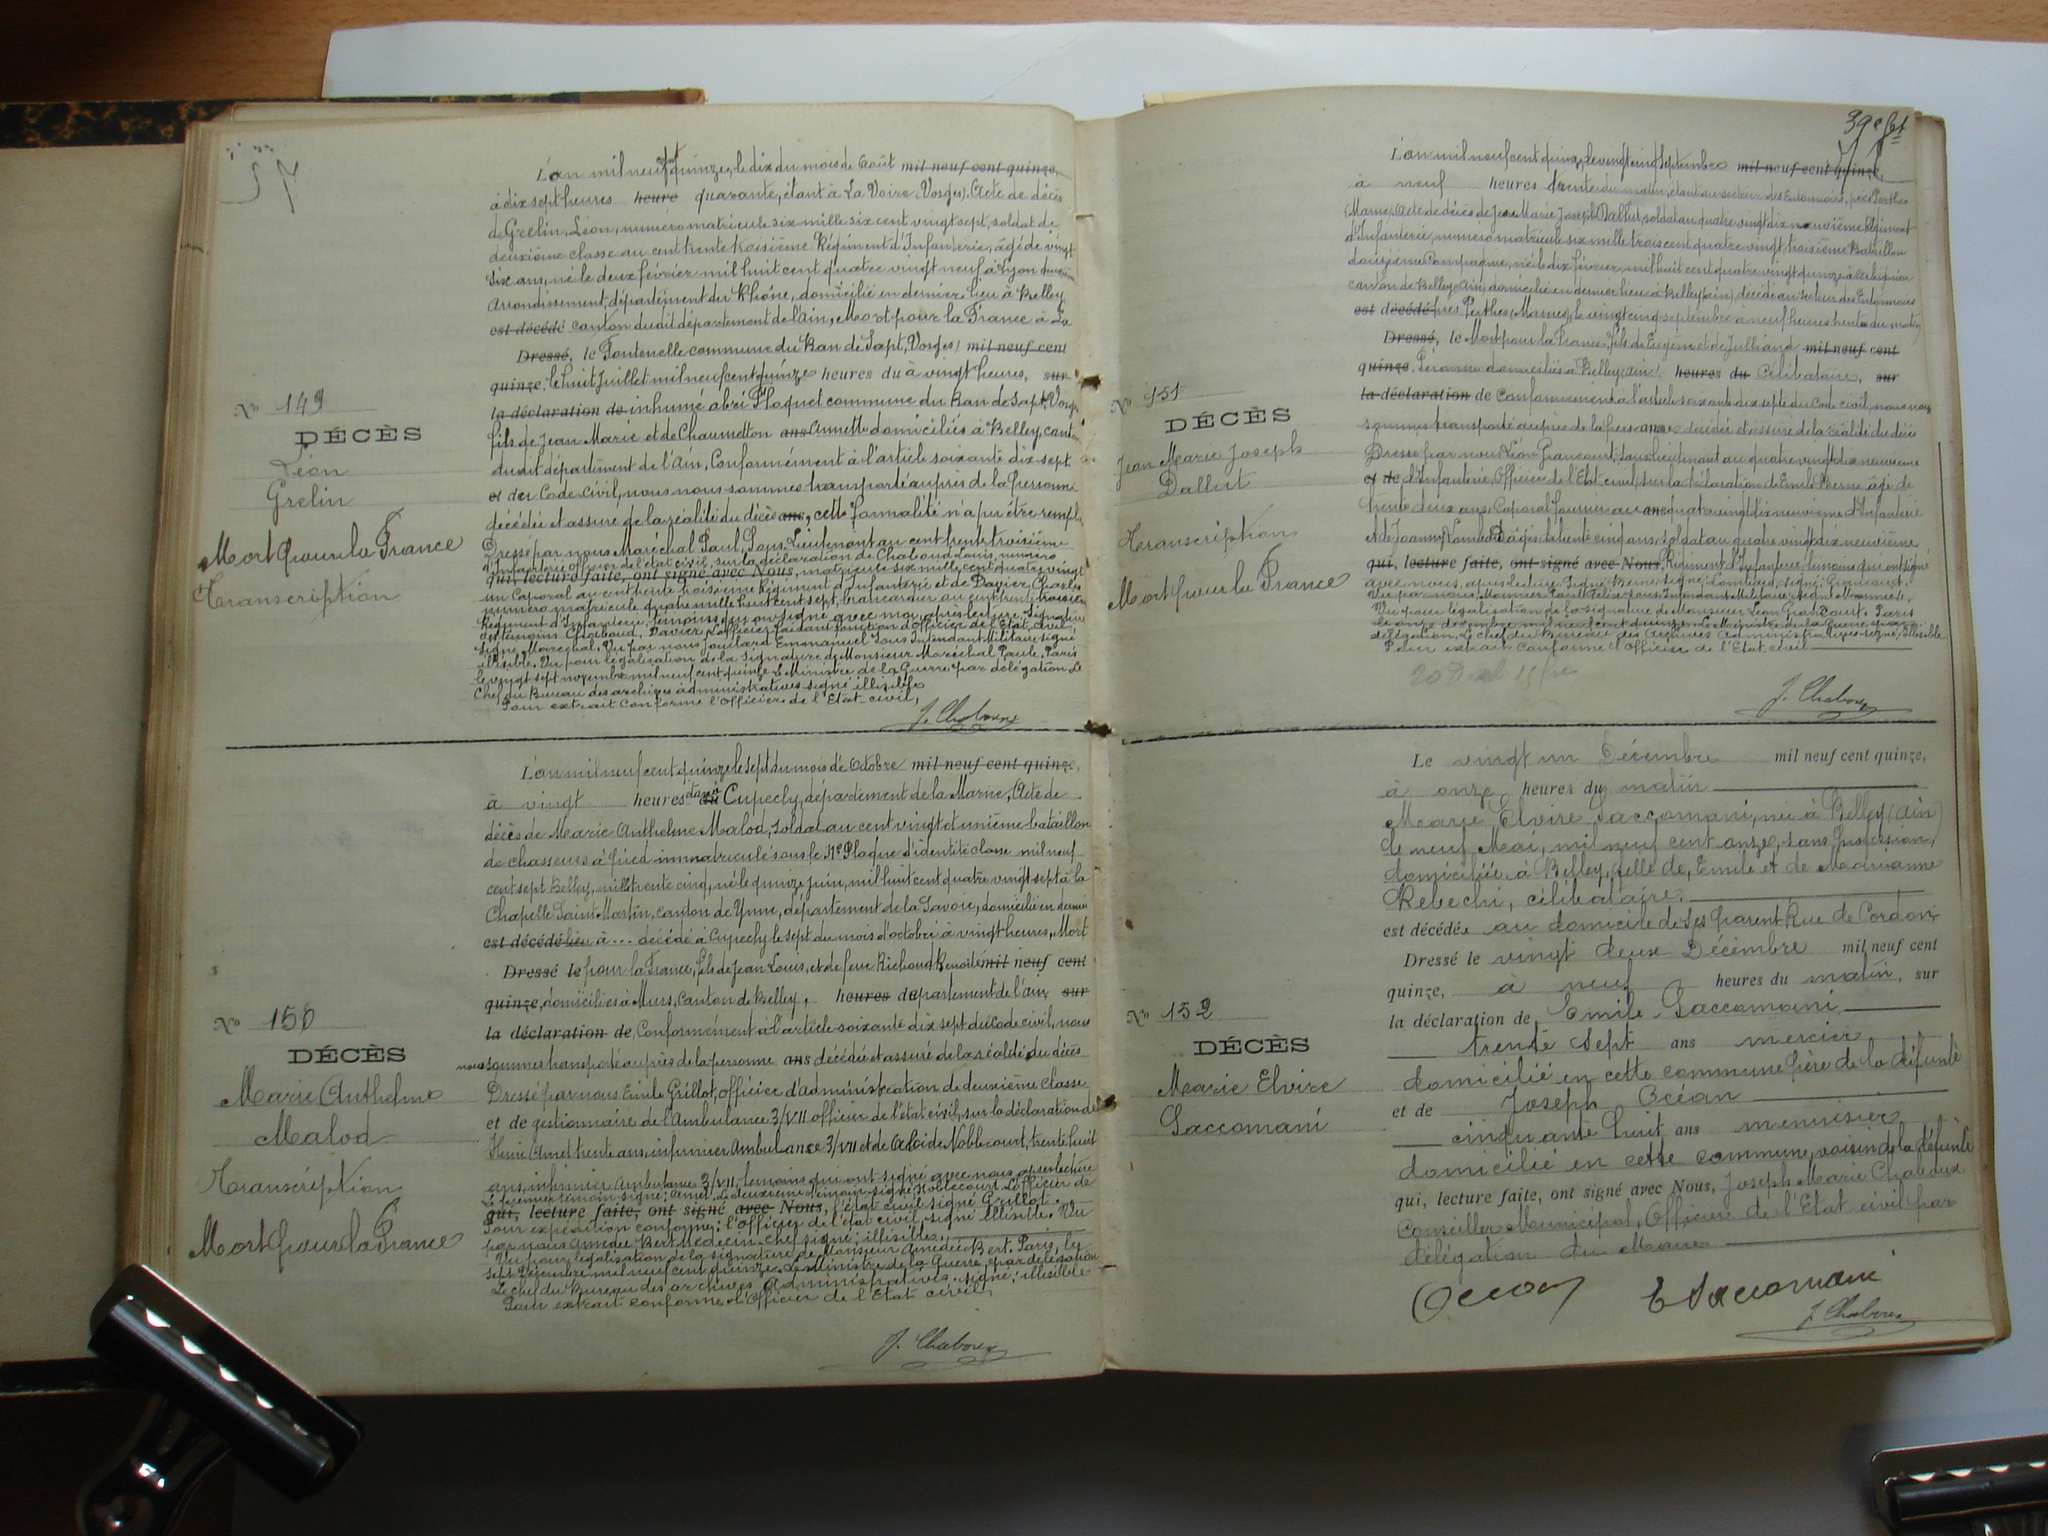 N° 149
DÉCÈS
Léon
Grelin
Mort pour la France
Transcription
L'an mil neuf cent quinze, le dix du mois de Août mil neuf cent quinze,
à dix sept heures heure quarante, étant à La Voivre (Vosges). Acte de décès
de Grelin, Léon, numéro matricule six mille six cent vingt sept, soldat de
deuxième classe au cent trente troisième Régiment d'Infanterie, âgé de vingt
six ans, né le deux février mil huit cent quatre vingt neuf à Lyon
Arrondissement, département du Rhône, domicilié en dernier lieu à Belley
est décédé canton dudit département de l'Ain, Mort pour la France à La
Dressé, le Fontenelle commune du Ban de Sapt, Vosges) mil neuf cent
quinze, le huit Juillet mil neuf cent quinze heures du à vingt heures, sur
la déclaration de inhumé abri Ploquet commune du Ban de Sapt, Vosges
fils de Jean Marie et de Chaumetton ans Annette domiciliés à Belley, canton
dudit département de l'Ain. Conformément à l'article soixante dix sept
et du Code Civil, nous nous sommes transporté auprès de la personne
décédée et assuré de la réalité du décès ans, cette formalité n'a pu être remplie
Dressé par nous Maréchal Paul, Sous Lieutenant au cent trente troisième
d'Infanterie officier de l'état civil, sur la déclaration de Chaboud Louis, numéro
qui, lecture faite, ont signé avec Nous, matricule six mille cent quatre vingt
un Caporal au cent trente troisième Régiment d'Infanterie et de Davier Charles
numéro matricule quatre mille huit cent sept, brancardier au cent trente troisième
Régiment d'Infanterie, témoins qui ont signé avec moi, après lecture. Signature
des témoins Chaboud, Davier, l'officier faisant fonction d'officier de l'Etat civil
signé Maréchal. Vu par nous Emmanuel Sous Intendant Militaire signé
illisible. Vu pour légalisation de la signature de Monsieur Maréchal Paul. Paris
le vingt sept novembre mil neuf cent quinze. Le Ministre de la Guerre par délégation Le
Chef du Bureau des archives administratives signé illisible
Pour extrait conforme l'Officier de l'Etat-civil,
J. Chaboux
N° 150
DÉCÈS
Marie Anthelme
Malod
Transcription
Mort pour la France
L'an mil neuf cent quinze le sept du mois de Octobre mil neuf cent quinze,
à vingt heures étant à Cuperly, département de la Marne, Acte de
décès de Marie Anthelme Malod, soldat au cent vingt et unième bataillon
de chasseurs à pied immatriculé sous le N° Plaque d'identité classe mil neuf
cent sept Belley, mille trente cinq, né le quinze juin, mil huit cent quatre vingt sept à la
Chapelle Saint Martin, canton de Yenne, département de la Savoie, domicilié en dernier
est décédé lieu à ... décédé à Cuperly le sept du mois d'octobre à vingt heures, Mort
Dressé le pour la France, fils de Jean Louis, et de feue Richoud Benoîte mil neuf cent
quinze, domiciliés à Murs, Canton de Belley, heures département de l'ain sur
la déclaration de, Conformément à l'article soixante dix sept du Code civil, nous
nous sommes transporté auprès de la personne ans décédée et assuré de la réalité du décès
Dressé par nous Emile Grillot, officier d'administration de deuxième classe
et de gestionnaire de l'Ambulance 3/VII officier de l'état civil, sur la déclaration de
Henri Amet trente ans, infirmier Ambulance 3/VII et de Alcide Noblecourt, trente huit
ans, infirmier Ambulance 3/VII, témoins qui ont signé avec nous après lecture
Le premier témoin signé: Amet. Le deuxième témoin signé: Noblecourt. L'officier de
qui, lecture faite, ont signé avec Nous, l'état civil signé Grillot.
Pour expédition conforme: l'officier de l'état civil, signé illisible. Vu
par nous Amédée Bert Médecin-chef signé: illisible.
Vu pour légalisation de la signature de Monsieur Amédée Bert. Paris, le
sept Décembre mil neuf cent quinze. Le Ministre de la Guerre, par délégation
Le chef du Bureau des archives administratives signé: illisible
Pour extrait conforme l'Officier de l'Etat civil,
J. Chaboux
39e
N° 151
DÉCÈS
Jean Marie Joseph
Dallut
Transcription
Mort pour la France
L'an mil neuf cent quinze, le vingt cinq Septembre mil neuf cent quinze,
à neuf heures trente du matin, étant au secteur des Entonnoirs, près Perthes
(Marne). Acte de décès de Jean Marie Joseph Dallut, soldat au quatre vingt dix neuvième Régiment
d'Infanterie, numéro matricule six mille trois cent quatre vingt, troisième Bataillon
douzième Compagnie, né le dix février, mil huit cent quatre vingt quinze à
canton de Belley (Ain) domicilié en dernier lieu à Belley (ain), décédé au secteur des Entonnoirs
est décédé près Perthes (Marne), le vingt cinq septembre à neuf heures trente du matin
Dressé, le Mort pour la France, fils de Eugène et de Julliand mil neuf cent
quinze Péronne domiciliés à Belley (ain) heures du Célibataire, sur
la déclaration de Conformément à l'article soixante dix sept du Code civil, nous nous
sommes transporté auprès de la personne décédée et assuré de la réalité du décès
Dressé par nous Léon Grancourt, sous lieutenant au quatre vingt dix neuvième
et de d'Infanterie, Officier de l'Etat civil, sur la déclaration de Emile Berne âgé de
trente deux ans, Caporal fourrier au ans quatre vingt dix neuvième d'Infanterie
et de Joanny Lombard âgé de trente cinq ans, soldat au quatre vingt dix neuvième
qui, lecture faite, ont signé avec Nous, Régiment d'Infanterie, témoins qui ont signé
avec nous, après lecture. Signé Berne, signé: Lombard, signé: Grancourt.
Vu par nous, Monnier Paul Félix sous Intendant Militaire, signé Monnier.
Vu pour légalisation de la signature de Monsieur Léon Grancourt. Paris
le onze décembre mil neuf cent quinze. Le Ministre de la Guerre par
délégation, Le chef du Bureau des Archives Administratives signé: illisible
Pour extrait conforme l'Officier de l'Etat civil
J. Chaboux
N° 152
DÉCÈS
Marie Elvire
Saccomani
Le vingt un Décembre mil neuf cent quinze,
à onze heures du matin
Marie Elvire Saccomani, née à Belley (Ain)
le neuf Mai, mil neuf cent onze, sans profession,
domiciliée à Belley, fille de, Emile et de Marianne
Rebechi, célibataire,
est décédée au domicile de ses parent Rue de Cordon
Dressé le vingt deux Décembre mil neuf cent
quinze, à neuf heures du matin, sur
la déclaration de Emile Saccomani
trente sept ans mercier
domicilié en cette commune père de la défunte
et de Joseph Océan
cinquante huit ans menuisier
domicilié en cette commune, voisin de la défunte
qui, lecture faite, ont signé avec Nous, Joseph Marie Chaboux
Conseiller Municipal, Officier de l'Etat civil par
délégation du Maire
Océan E Saccomani
J. Chaboux